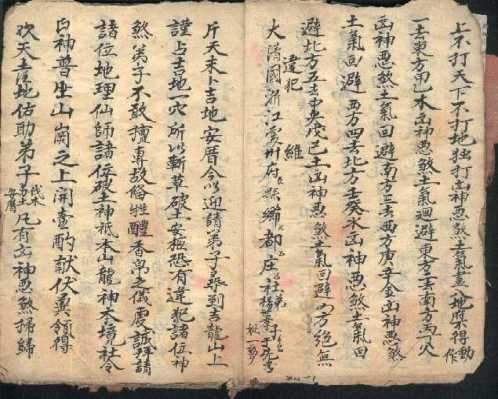 上不打天下不打地独打凶神悪煞土氣
一去東方甲乙木凶神悪煞土氣回避東方二去南方丙丁火
凶神悪煞土氣回避南方三去西方庚辛金凶神悪煞
土氣回避西方四去北方壬癸水凶神悪煞土氣回
避北方五去中央戊己土凶神悪煞土氣回避方絕無
違犯
維
大清國浙江處州府縣鄉都庄社
斤天未卜吉地安厝今以迎請弟子到吉龍山上
謹占吉地一穴所以斬草破土安恐有違犯諸位神
煞弟子不敢擅專故俻牲醴香帛之儀虔誠拜請
諸位地理仙師諸位破土神祇本山龍神本境社令
白神普在山崗之上開壺酌献伏兾領得
欢天喜地佑助弟子凡有凶神悪煞掃歸